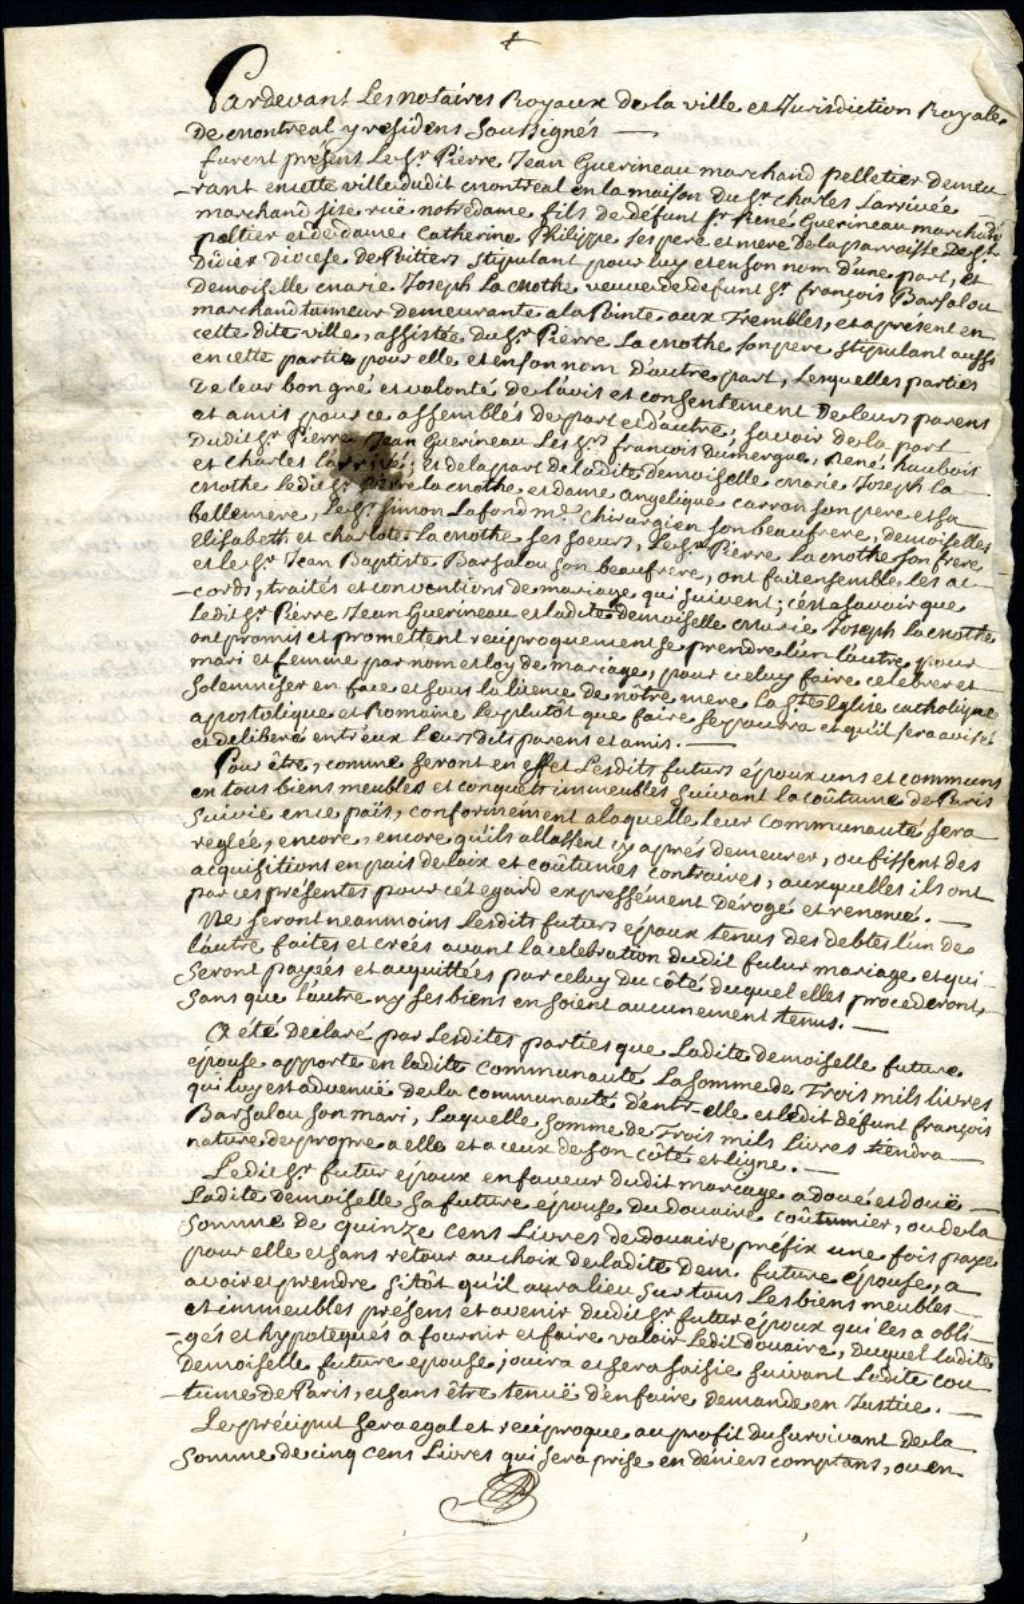 Pardevant Les notaires Royaux de la ville et Jurisdiction Royale
De Montreal y residens Soussignés —
furent présent Le Sr. Pierre Jean Guerineau marchand pelletier demeu
-rant en cette ville dudit Montreal en la maison du Sr. Charles Larrivée
marchand size ruë notre dame fils de défunt Sr. René Guerineau marchand
peltier et de dame Catherine Philippe ses pere et mere De la parroisse de St.
Didier Diocese de Poitiers stipulant pour luy et en son nom d'une part, et
Demoiselle Marie Joseph La Mothe veuve de defunt Sr. françois Barsalou
marchand tanneur demeurante a la Pointe aux Trembles, et a présent en
cette dite ville, assistée du Sr. Pierre La Mothe son pere stipulant aussi
en cette partie pour elle et en son nom d'autre part, Lesquelles parties
De leur bon gré et volonté de l'avis et consentement De leurs parens
et amis pour ce assemblés de part et d'autre; savoir de la part
Dudit Sr. Pierre Jean Guerineau Les Srs. françois Dumergue, René haubois
et Charles l'arrivé; et de la part de ladite demoiselle Marie Joseph La
Mothe ledit Sr. Pierre La Mothe et dame angelique carron son pere et sa
bellemere, Le Sr. Simon Lafond me. Chirurgien son beaufrere, demoiselles
Elisabeth et charlote La Mothe ses soeurs, Le Sr. Pierre La Mothe son frere
et le Sr. Jean Baptiste Barsalou son beaufrere, ont fait ensemble les ac
-cords, traités et conventions de mariage qui suivent; c'est a savoir que
Ledit Sr. Pierre Jean Guerineau et ladite demoiselle Marie Joseph La Mothe
ont promis et promettent reciproquement se prendre l'un l'autre pour
mari et femme par nom et loy de mariage, pour iceluy faire celebrer et
Solemniser en face et sous la licence de nôtre mere la Ste. Eglise catholique
apostolique et Romaine le plutôt que faire se poura et qu'il sera avisé
et deliberé entr'eux Leurs dits parens et amis. —
Pour être, comme seront en effet Lesdits futurs époux uns et communs
en tous biens meubles et conquets immeubles suivant la coûtume de Paris
Suivie en ce païs, conformément a laquelle leur communauté sera
reglée, encore, encore qu'ils allassent cy aprés demeurer, ou fissent des
acquisitions en païs de loix et coûtumes contraires, auxquelles ils ont
par ces présentes pour cét egard expressément dérogé et renoncé. —
Ne seront neanmoins Lesdits futurs époux tenus des debtes l'un de
l'autre faites et creés avant la celebration dudit futur mariage et qui
seront payées et acquittées par celuy du côté duquel elles procederont,
Sans que l'autre ny ses biens en soient aucunement tenus. —
A été déclaré par Lesdites parties que Ladite demoiselle future
épouse apporte en ladite communauté La somme de Trois mils livres
qui luy est advenuë de la communauté d'entr-elle et ledit défunt françois
Barsalou son mari, Laquelle somme de Trois mils livres tiendra
nature de propre a elle et a ceux de son côté et ligne. —
Ledit Sr. futur époux en faveur dudit mariage a doué et douë —
Ladite Demoiselle sa future épouse du douaire coûtumier, ou de la
Somme de quinze cens Livres de douaire préfix une fois payé
pour elle et sans retour au choix de ladite dem. future épouse, a
avoir et prendre sitôt qu'il aura lieu sur tous Les biens meubles —
et immeubles présens et avenir dudit Sr. futur epoux qui les a obli
-gés et hypotequés a fournir et faire valoir Ledit douaire, duquel ladite
Demoiselle future epouse jouira et sera saisie suivant Ladite cou
-tume de Paris, et sans être tenuë d'en faire demande en Justice. —
Le préciput sera egal et reciproque au profit du survivant de la
Somme de cinq cens Livres qui sera prise en déniers comptans, ou en